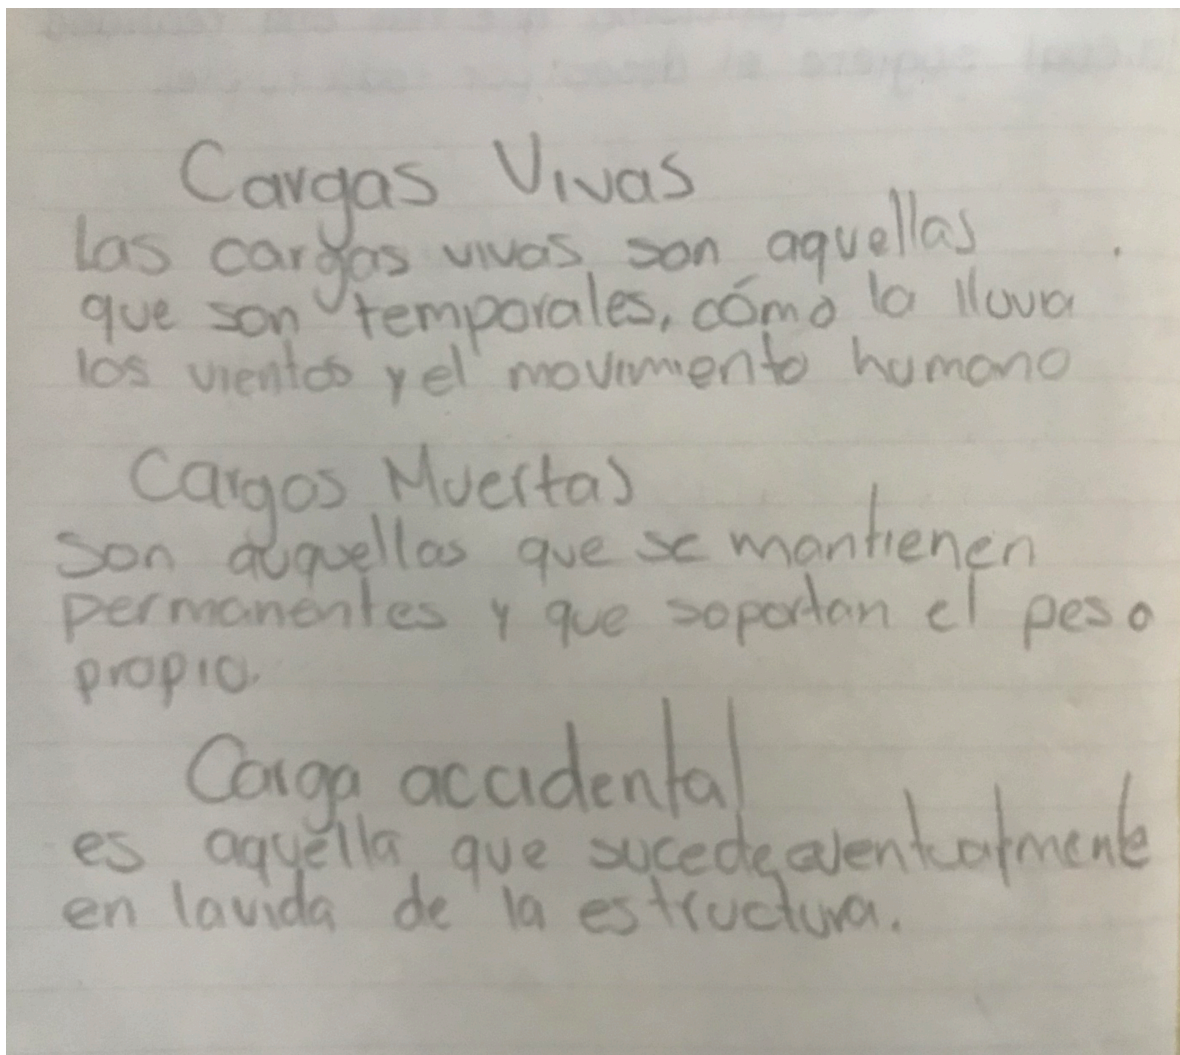 Cargas Vivas
Las cargas vivas son aquellas
que son temporales, cómo la lluva
los vientos y el movimiento humano
Cargas Muertas
Son auquellas que se mantienen
permanentes y que soportan el peso
propio.
Carga accidental
es aquella que sucede eventualmente
en la vida de la estructura.